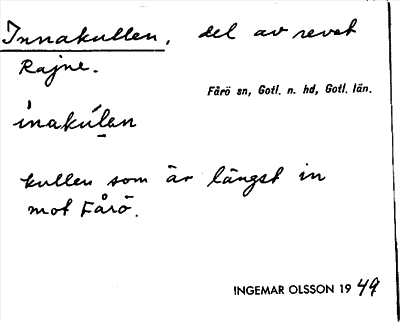 Innakullen, del av revet
Rajne.
Fårö sn, Gotl. n. hd, Gotl. län.
ínakúlan
kullen som är längst in
mot Fårö.
INGEMAR OLSSON 1949